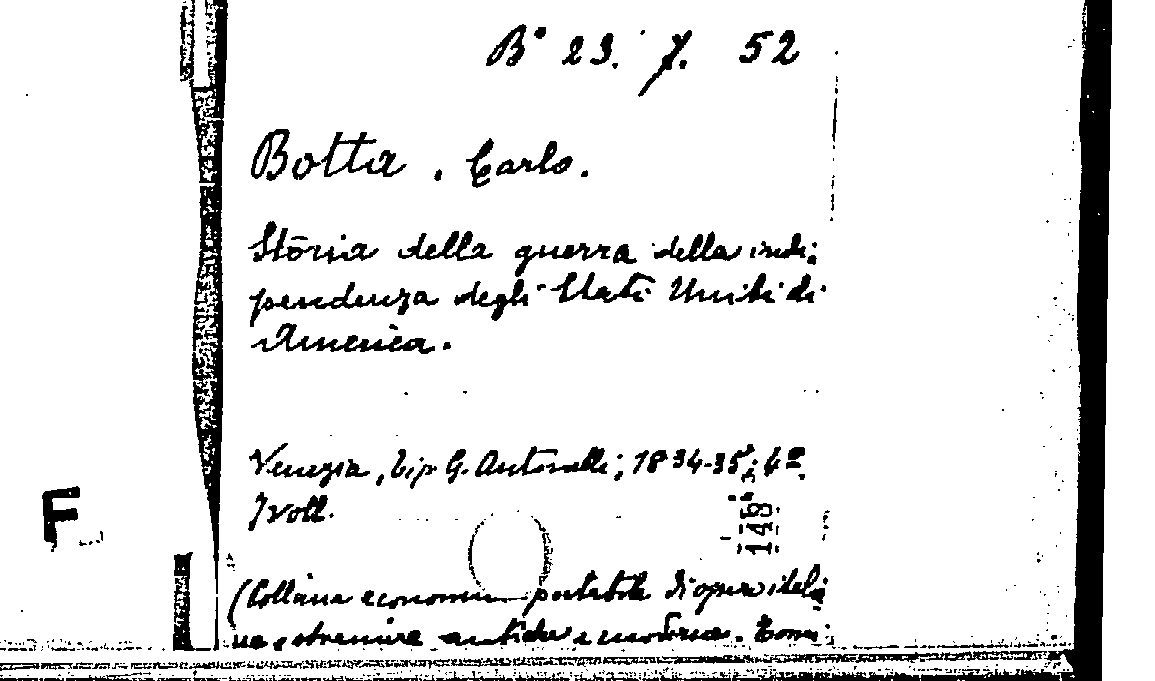 B° 23. 7. 52
Botta. Carlo.
Storia della guerra della indi-
pendenza degli Stati Uniti di
America.
Venezia, tip G. Antonelli; 1834-35; 4º
7 voll.
F
148
(Collana economica portabile di opere italia
ne, straniere antiche e moderne. Tomi